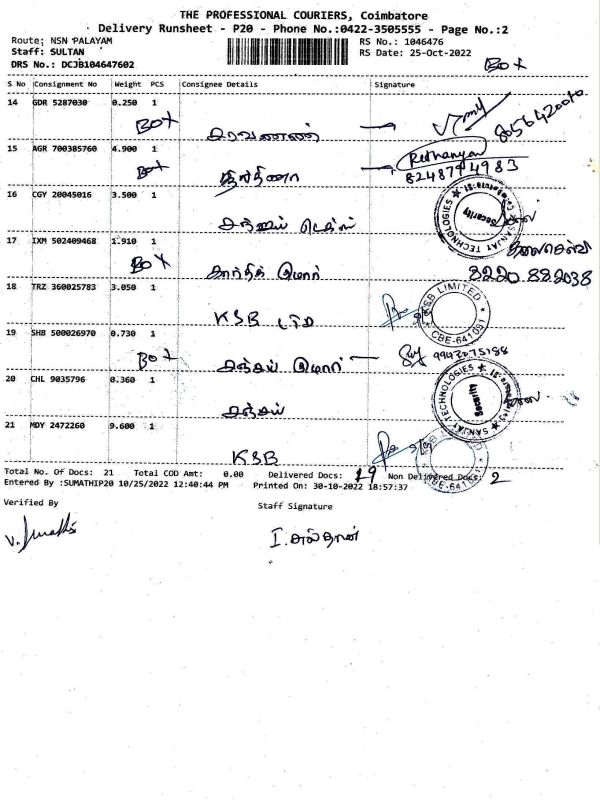 THE PROFESSIONAL COURIERS, Coimbatore
Delivery Runsheet - P20 - Phone No.:0422-3505555 - Page No.:2
Route: NSN PALAYAM
RS No.: 1046476
Staff: SULTAN
RS Date: 25-Oct-2022
DRS No.: DCJB104647602
Box
S No Consignment No Weight PCS Consignee Details Signature
14 GDR 5287030 0.250 1
Box சரவணன்
8056420010
15 AGR 700385760 4.900 1
Rethanya
Box
8248794983
16 CGY 20045016 3.500 1
SANJAY TECHNOLOGIES
Security
17 IXM 502409468 1.910 1
கலைசெல்வி
Box கார்த்திக் குமார்
8220882038
18 TRZ 360025783 3.050 1
KSB LTD
KSB LIMITED
CBE-641031
19 SHB 500026970 0.730 1
Box சஞ்சய் குமார்
9942075188
20 CHL 9035796 0.360 1
சஞ்சய்
SANJAY TECHNOLOGIES
Security
21 MDY 2472260 9.600 1
KSB
CBE-641031
Total No. Of Docs: 21 Total COD Amt: 0.00 Delivered Docs: 19 Non Delivered Docs: 2
Entered By :SUMATHIP20 10/25/2022 12:40:44 PM Printed On: 30-10-2022 18:57:37
Verified By
Staff Signature
V. Sumathi
I. சுல்தான்